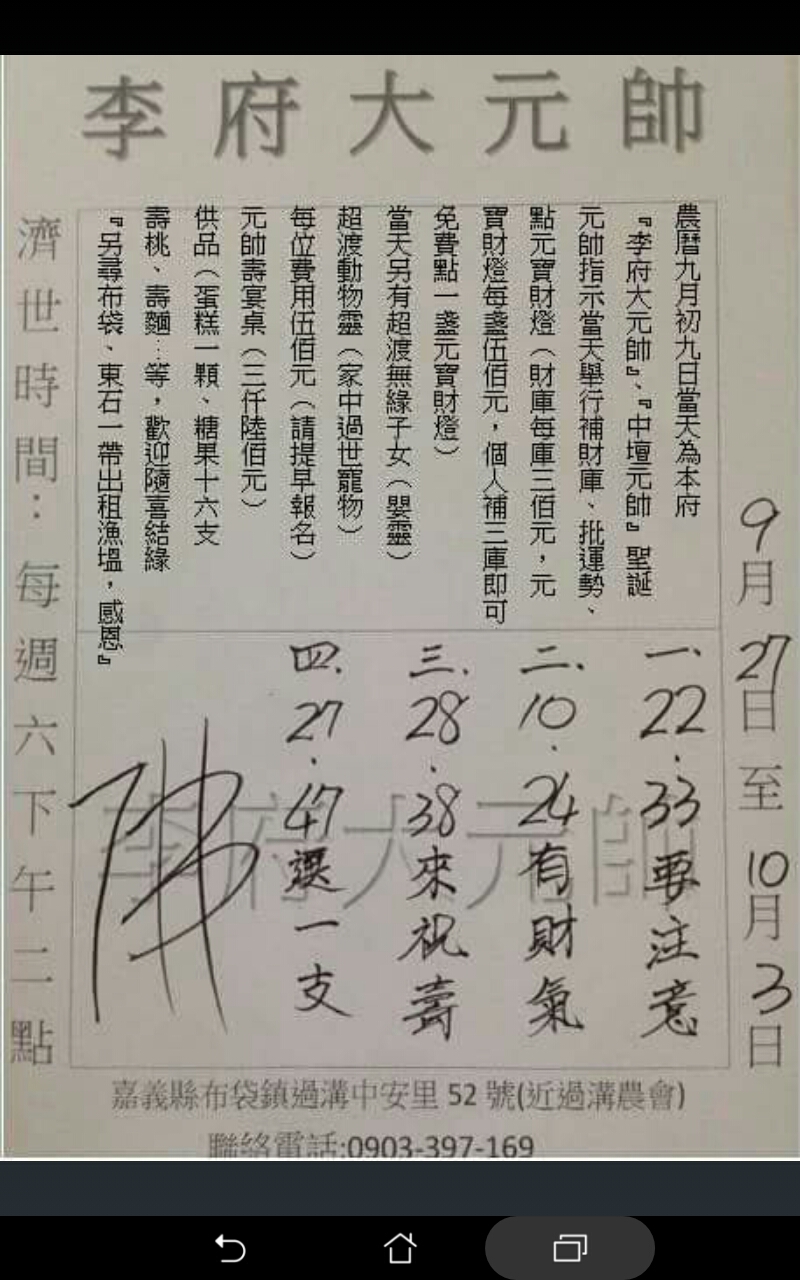 李府大元帥
9月27日至10月3日
農曆九月初九日當天為本府
『李府大元帥』、『中壇元帥』聖誕
元帥指示當天舉行補財庫、批運勢、
點元寶財燈（財庫每庫三佰元，元
寶財燈每盞伍佰元，個人補三庫即可
免費點一盞元寶財燈）
當天另有超渡無緣子女（嬰靈）
超渡動物靈（家中過世寵物）
每位費用伍佰元（請提早報名）
元帥壽宴桌（三仟陸佰元）
供品（蛋糕一顆、糖果十六支
壽桃、壽麵…等，歡迎隨喜結緣
『另尋布袋、東石一帶出租漁塭，感恩』
一、22.33要注意
二、10.24有財氣
三、28.38來祝壽
四、27.47選一支
佛
李府大元帥
濟世時間：每週六下午二點
嘉義縣布袋鎮過溝中安里 52 號(近過溝農會)
聯絡電話:0903-397-169